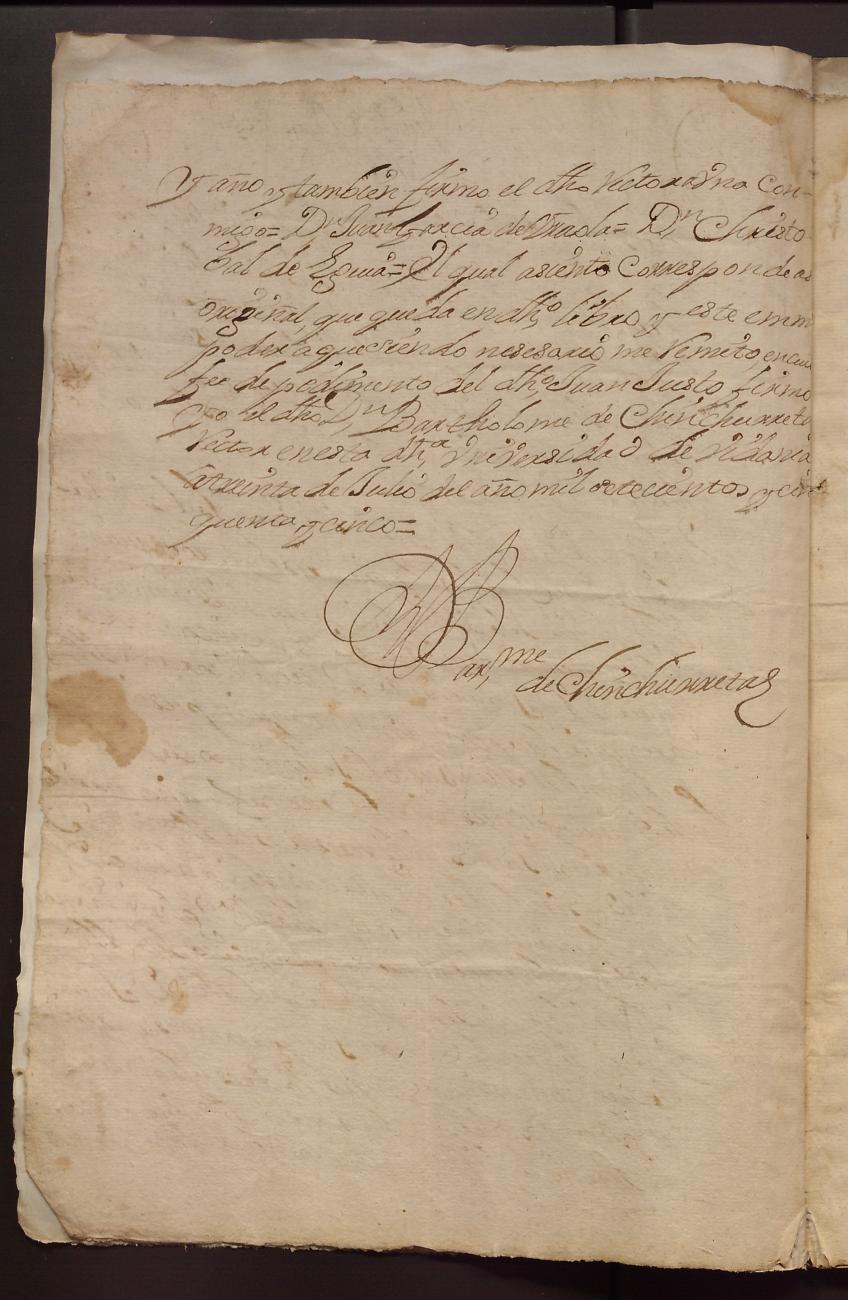 y año, y tambien firmo el dho Victoriano con-
migo= Dn Juan Garcia de = Dn Christo-
bal de Eguia= El qual asiento corresponde a
original, que queda en dho libro, y este en m
poder a que siendo nesesario me remito, en cui
fee de pedimento del dho Juan Justo firmo
yo el dho Dn Bartholome de Chinchurreta
Rector en esta dha Vniversidad de Vidania
a treinta de Julio del año mil setecientos y cin
quenta y cinco=
Barme
de Chinchurreta